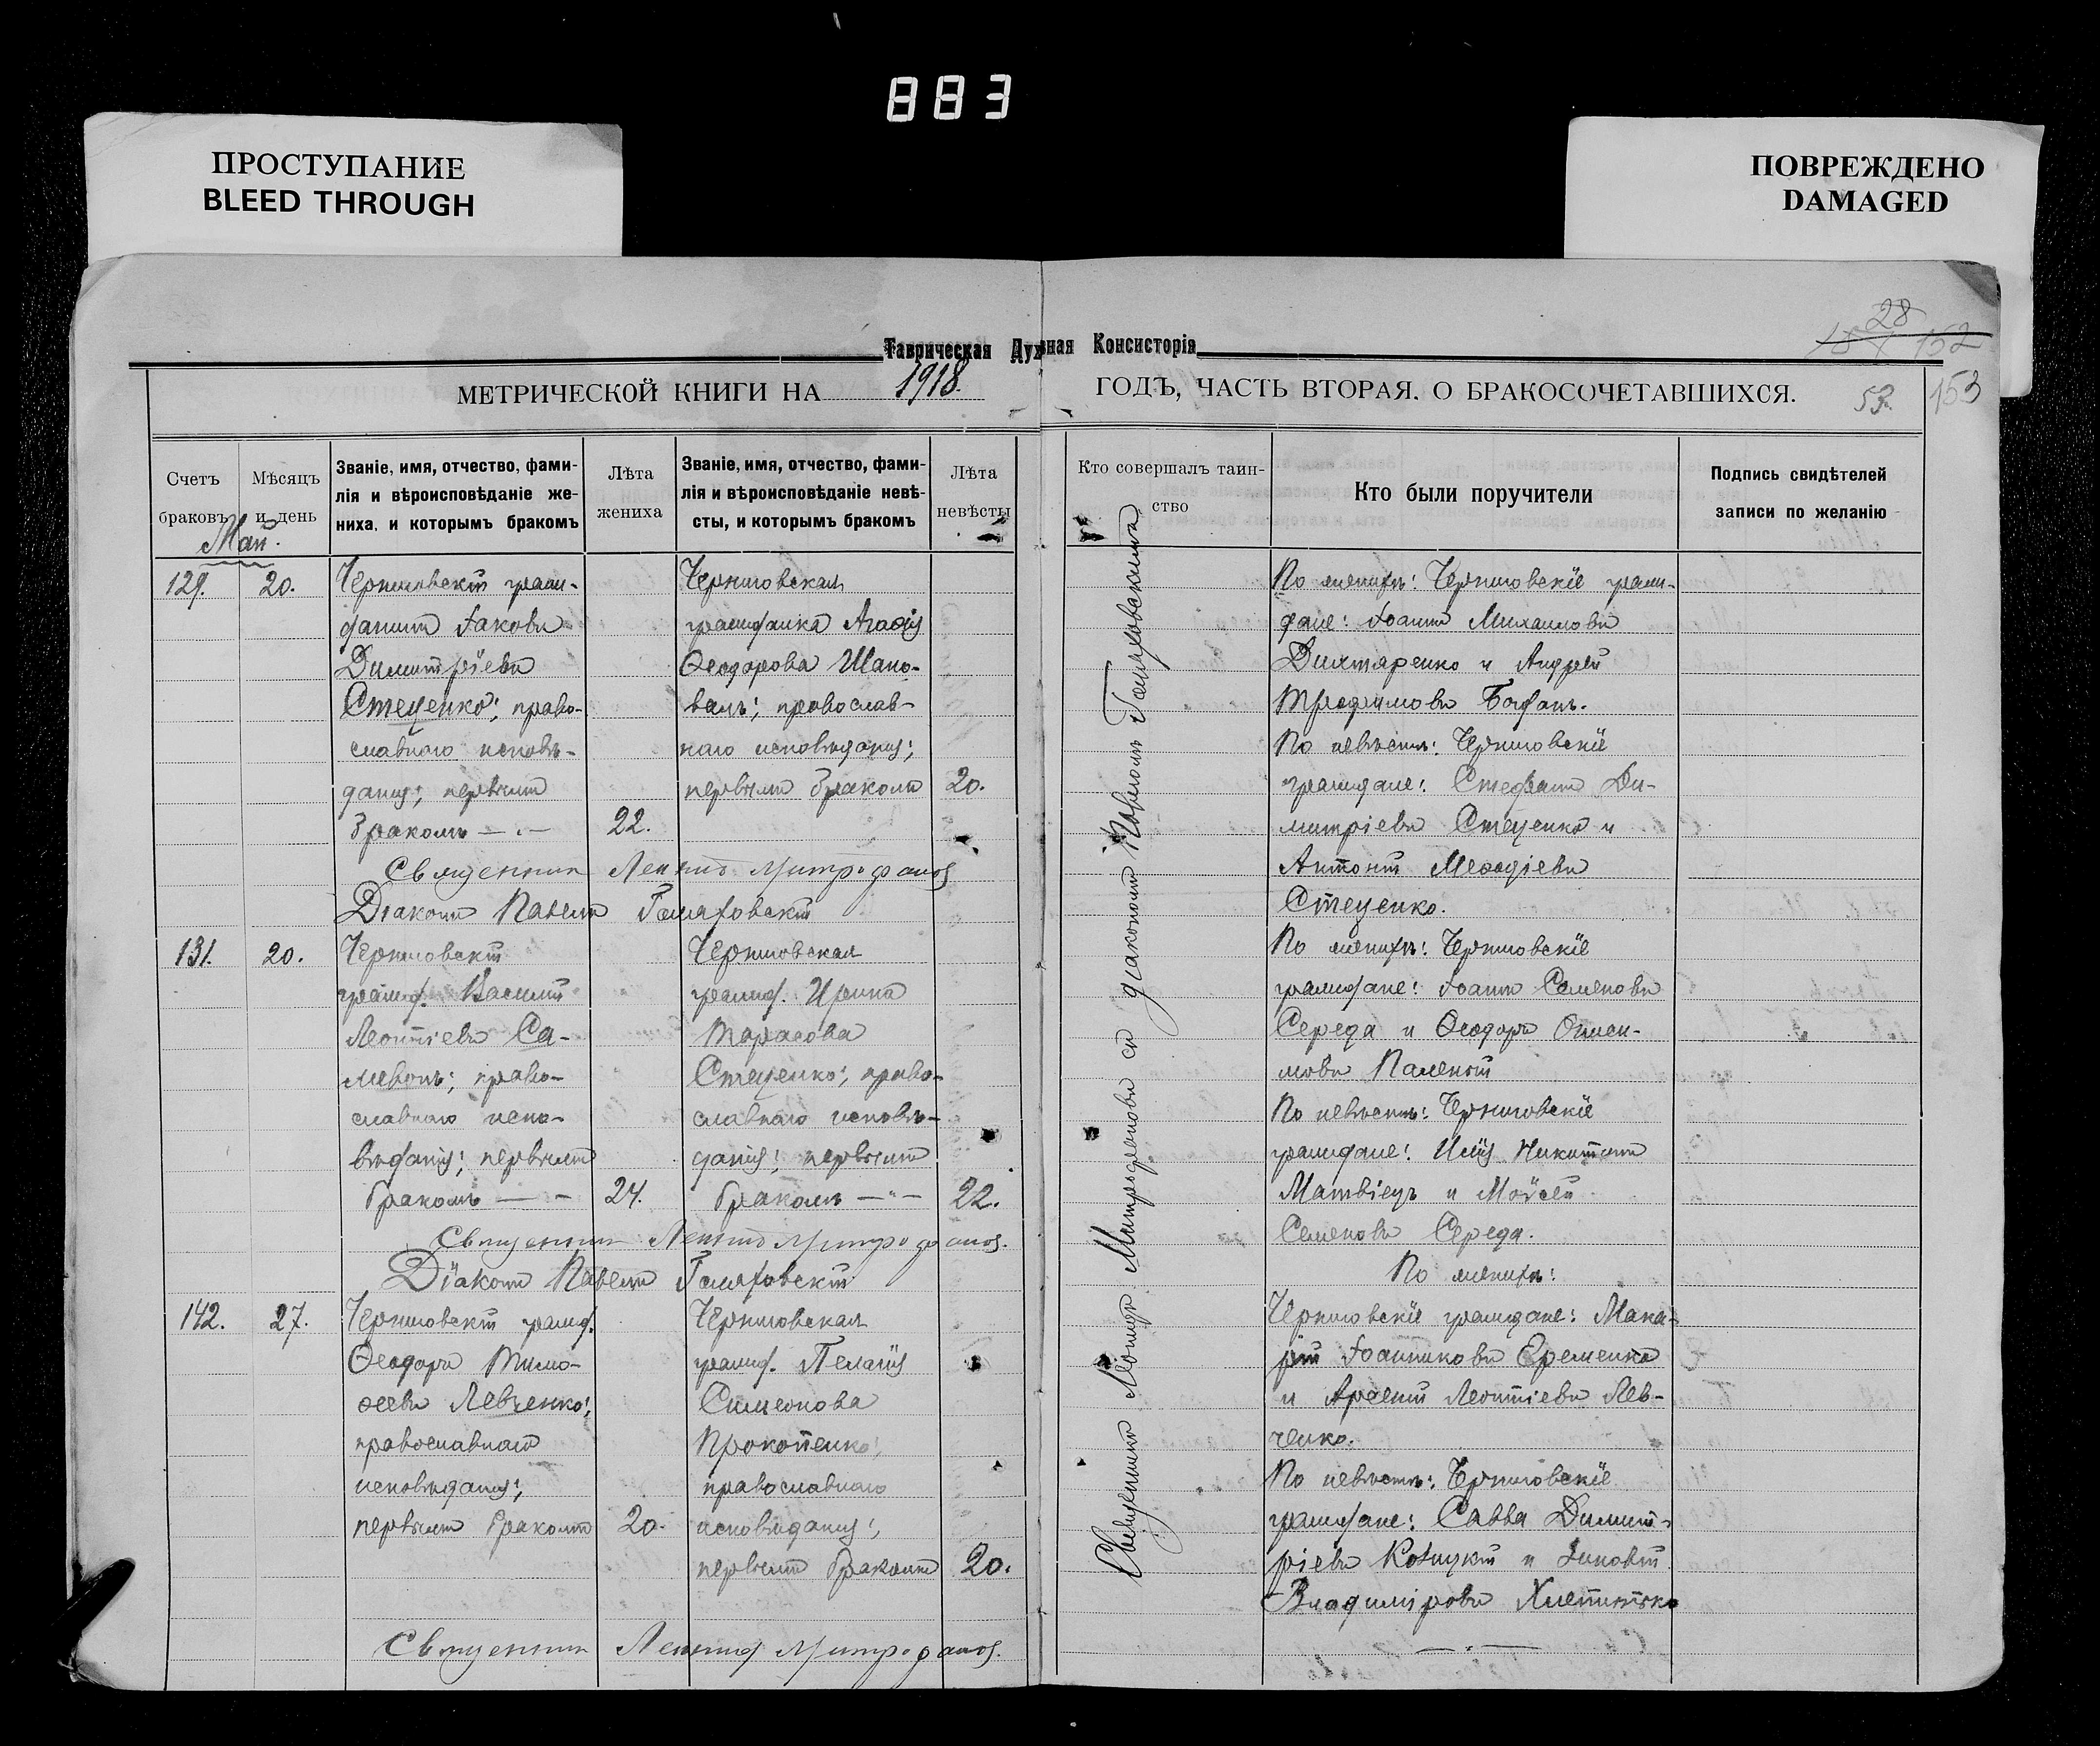 883
ПРОСТУПАНИЕ
BLEED THROUGH
ПОВРЕЖДЕНО
DAMAGED
28
152
Таврическая Духовная Консисторія
МЕТРИЧЕСКОЙ КНИГИ НА 1918. ГОДЪ, ЧАСТЬ ВТОРАЯ, О БРАКОСОЧЕТАВШИХСЯ.
53. 153
Счетъ браковъ
Мѣсяцъ и день
Званіе, имя, отчество, фами-
лія и вѣроисповѣданіе же-
ниха, и которымъ бракомъ
Лѣта жениха
Званіе, имя, отчество, фами-
лія и вѣроисповѣданіе невѣ-
сты, и которымъ бракомъ
Лѣта невѣсты
Кто совершалъ таин-
ство
Кто были поручители
Подпись свидѣтелей
записи по желанію
Май.
129. 20.
Черниговскій граж-
данинъ Іаковъ
Димитріевъ
Стеценко; право-
славнаго исповѣ-
данія; первымъ
бракомъ 22.
Черниговская
гражданка Агафія
Ѳеодорова Шапо-
валъ; православ-
наго исповѣданія;
первымъ бракомъ 20.
По женихѣ: Черниговскіе граж-
дане: Іоаннъ Михаиловъ
Дихтяренко и Андрей
Трофимовъ Боданъ.
По невѣстѣ: Черниговскіе
граждане: Стефанъ Ди-
митріевъ Стеценко и
Антоній Меѳодіевъ
Стеценко.
Священникъ Леонид Митрофанов
Діаконъ Павелъ
131. 20.
Черниговскій
гражд. Василій
Леонтіевъ Са-
мевонъ; право-
славнаго испо-
вѣданія; первымъ
бракомъ 24.
Черниговская
гражд. Ирина
Тарасова
Стеценко; право-
славнаго исповѣ-
данія; первымъ
бракомъ 22.
По женихѣ: Черниговскіе
граждане: Іоаннъ Семеновъ
Середа и Ѳеодоръ Ониси-
мовъ Паленый
По невѣстѣ: Черниговскіе
граждане: Илія Никитинъ
Матвіецъ и Моѵсей
Семеновъ Середа.
Священник Леонид Митрофанов.
Діаконъ Павелъ
142. 27.
Черниговскій гражд.
Ѳеодоръ Тимо-
ѳеевъ Левченко;
православнаго
исповѣданія;
первымъ бракомъ 20.
Черниговская
гражд. Пелагія
Симеонова
Прокопенко;
православнаго
исповѣданія;
первымъ бракомъ 20.
По женихѣ:
Черниговскіе граждане: Мака-
рій Іоанникіевъ Еременко
и Арсеній Леонтіевъ Лев-
ченко.
По невѣстѣ: Черниговскіе
граждане: Савва Димит-
ріевъ и Зиновій
Владиміровъ
Священник Леонид Митрофанов.
Священникъ Леонидъ Митрофановъ съ діакономъ Павломъ